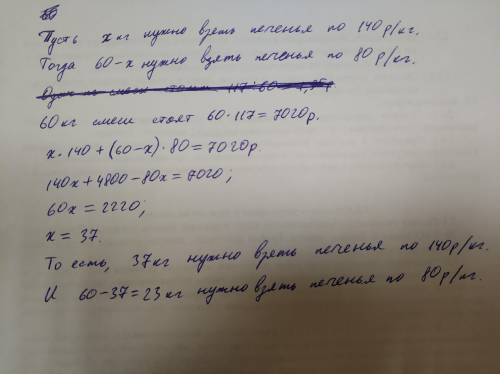 Пусть x кг нужно взять печенья по 140 р/кг.
Тогда 60-x нужно взять печенья по 80 р/кг.
60 кг смеси стоят 60·117=7020р.
x·140+(60-x)·80=7020р.
140x+4800-80x=7020;
60x=2220;
x=37.
То есть, 37кг нужно взять печенья по 140р/кг.
И 60-37=23кг нужно взять печенья по 80р/кг.